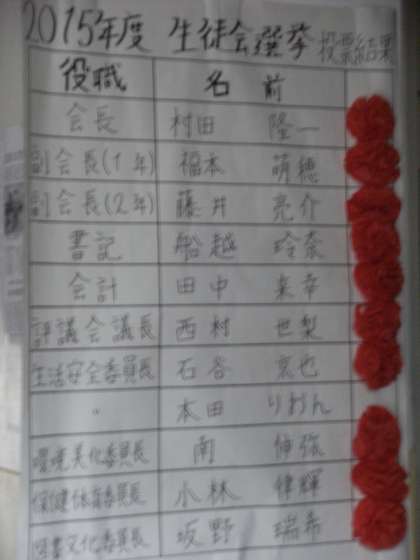 2015年度 生徒会選挙 投票結果
役職 名前
会長 村田 隆一
副会長(1年) 福本 萌穂
副会長(2年) 藤井 亮介
書記 船越 玲奈
会計 田中 来幸
評議会議長 西村 世梨
生活安全委員長 石谷 寛也
〃 本田 りおん
環境美化委員長 南 伸弥
保健体育委員長 小林 律輝
図書文化委員長 坂野 瑞希